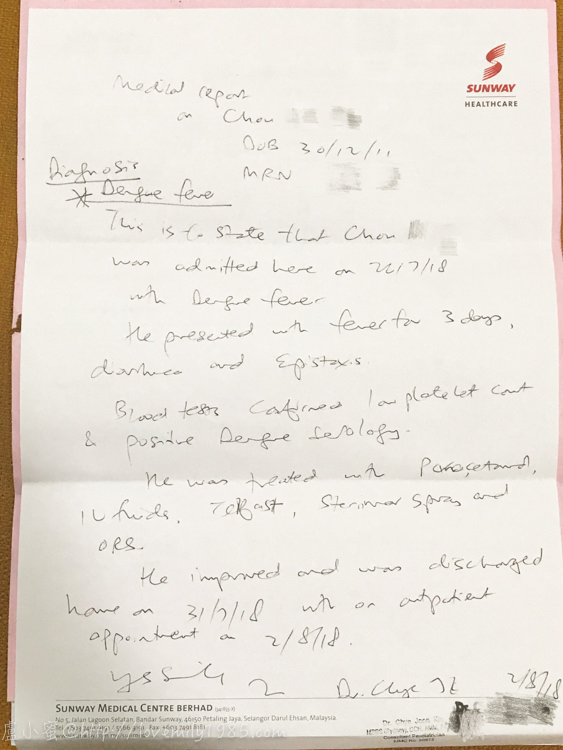 SUNWAY
HEALTHCARE
Medical report
on Chou
DOB 30/12/11
MRN
Diagnosis
* Dengue fever
This is to state that Chou
was admitted here on /7/18
with Dengue fever
He presented with fever for 3 days,
diarrhoea and Epistaxis.
Blood tests confirmed low platelet count
& positive Dengue serology.
He was treated with Paracetamol,
IV fluids, Telfast, Sterimar spray and
ORS.
He improved and was discharged
home on 31/7/18 with an outpatient
appointment on 2/8/18.
Dr.
2/8/18
SUNWAY MEDICAL CENTRE BERHAD
No 5, Jalan Lagoon Selatan, Bandar Sunway, 46150 Petaling Jaya, Selangor Darul Ehsan, Malaysia.